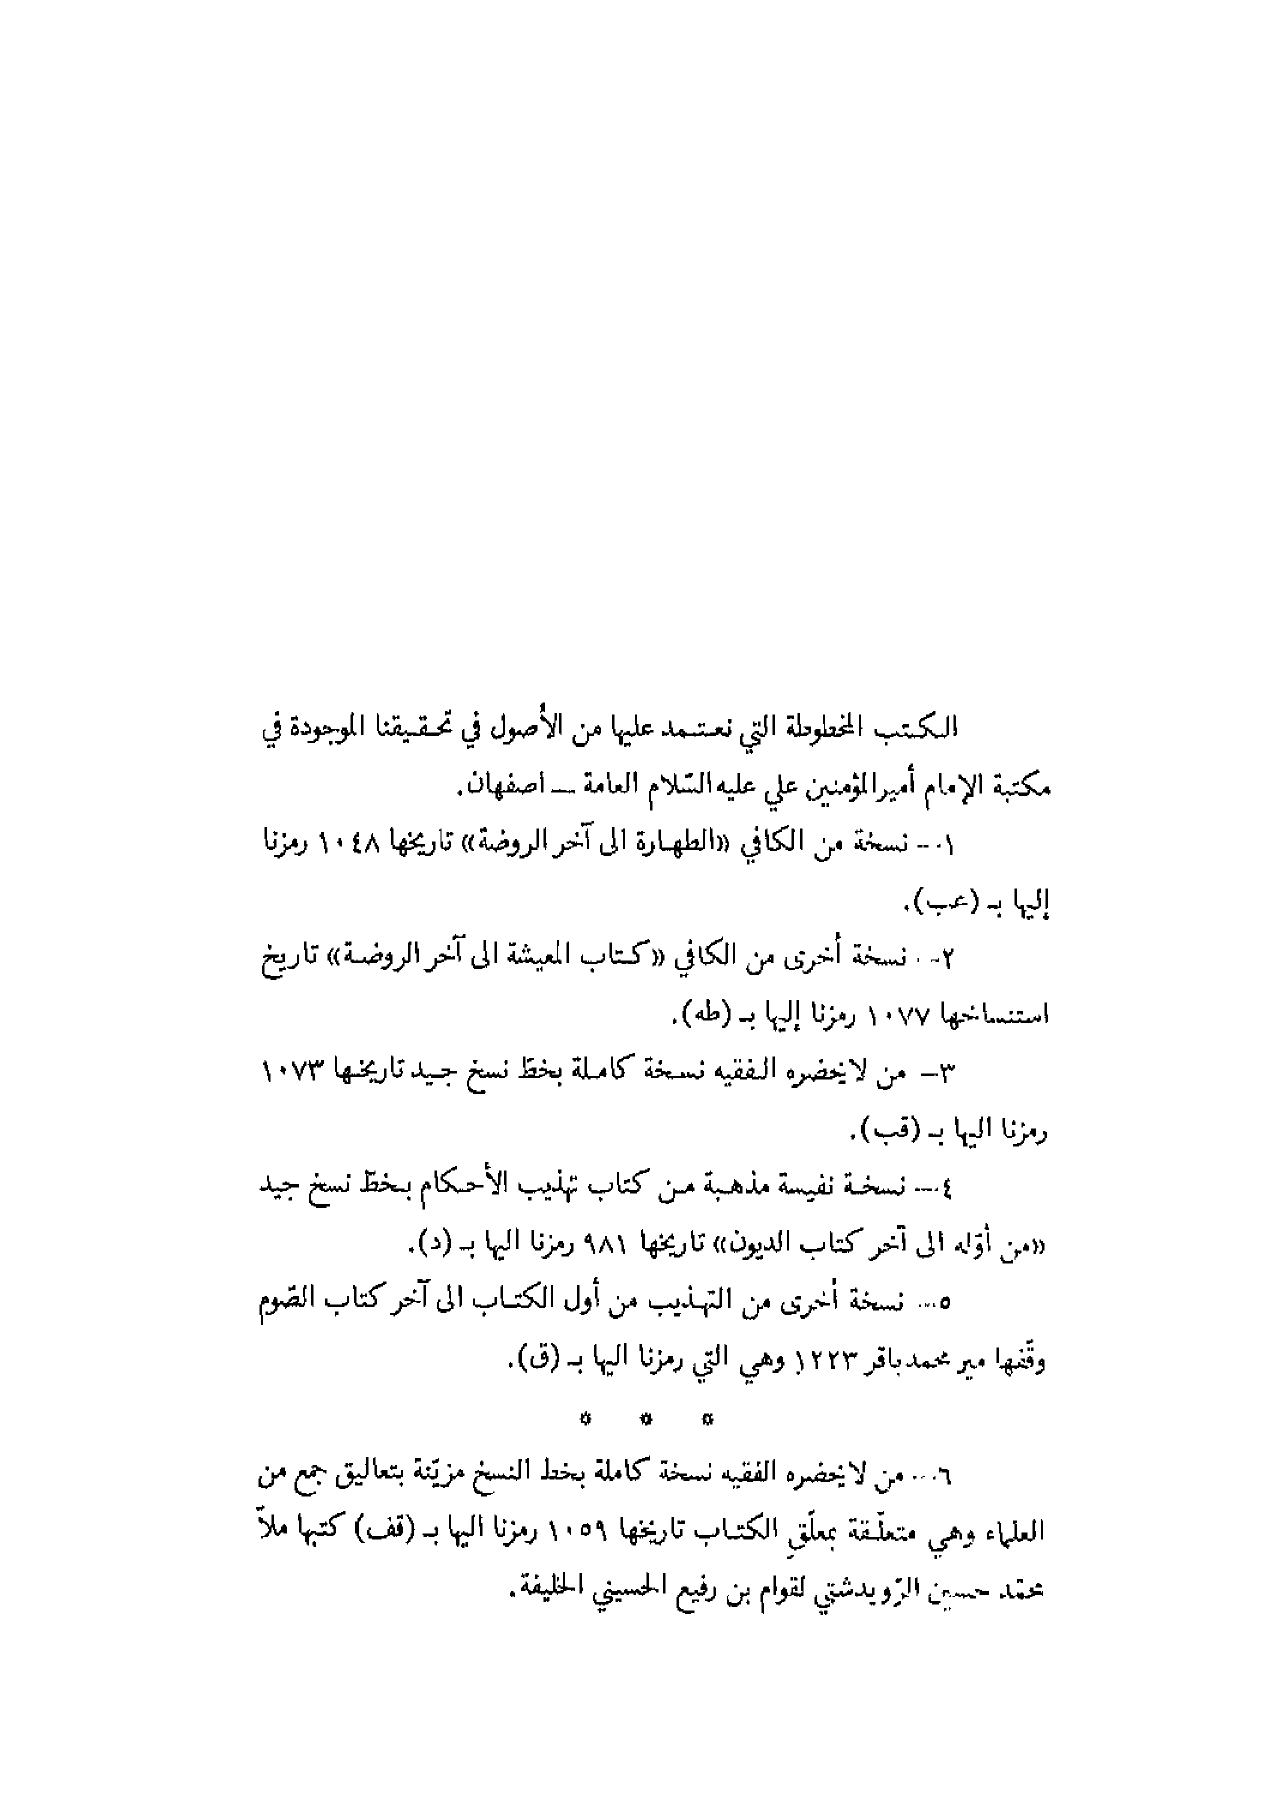 الكتب المخطوطة التي نعتمد عليها من الأصول في تحقيقنا الموجودة في
مكتبة الإمام أميرالمؤمنين علي عليه السّلام العامة — اصفهان.
١- نسخة من الكافي «الطهارة الى آخر الروضة» تاريخها ١٠٤٨ رمزنا
إليها بـ (عب).
٢- نسخة أخرى من الكافي «كتاب المعيشة الى آخر الروضة» تاريخ
استنساخها ١٠٧٧ رمزنا إليها بـ (طه).
٣- من لايحضره الفقيه نسخة كاملة بخطّ نسخ جيد تاريخها ١٠٧٣
رمزنا اليها بـ (قب).
٤- نسخة نفيسة مذهبة من كتاب تهذيب الأحكام بخطّ نسخ جيد
«من أوّله الى آخر كتاب الديون» تاريخها ٩٨١ رمزنا اليها بـ (د).
٥- نسخة أخرى من التهذيب من أول الكتاب الى آخر كتاب الصّوم
وقّفها مير محمدباقر ١٢٢٣ وهي التي رمزنا اليها بـ (ق).
* * *
٦- من لايحضره الفقيه نسخة كاملة بخط النسخ مزيّنة بتعاليق جمع من
العلماء وهي متعلّقة بمعلّقِ الكتاب تاريخها ١٠٥٩ رمزنا اليها بـ (قف) كتبها ملاّ
محمّد حسين الرّويدشتي لقوام بن رفيع الحسيني الخليفة.